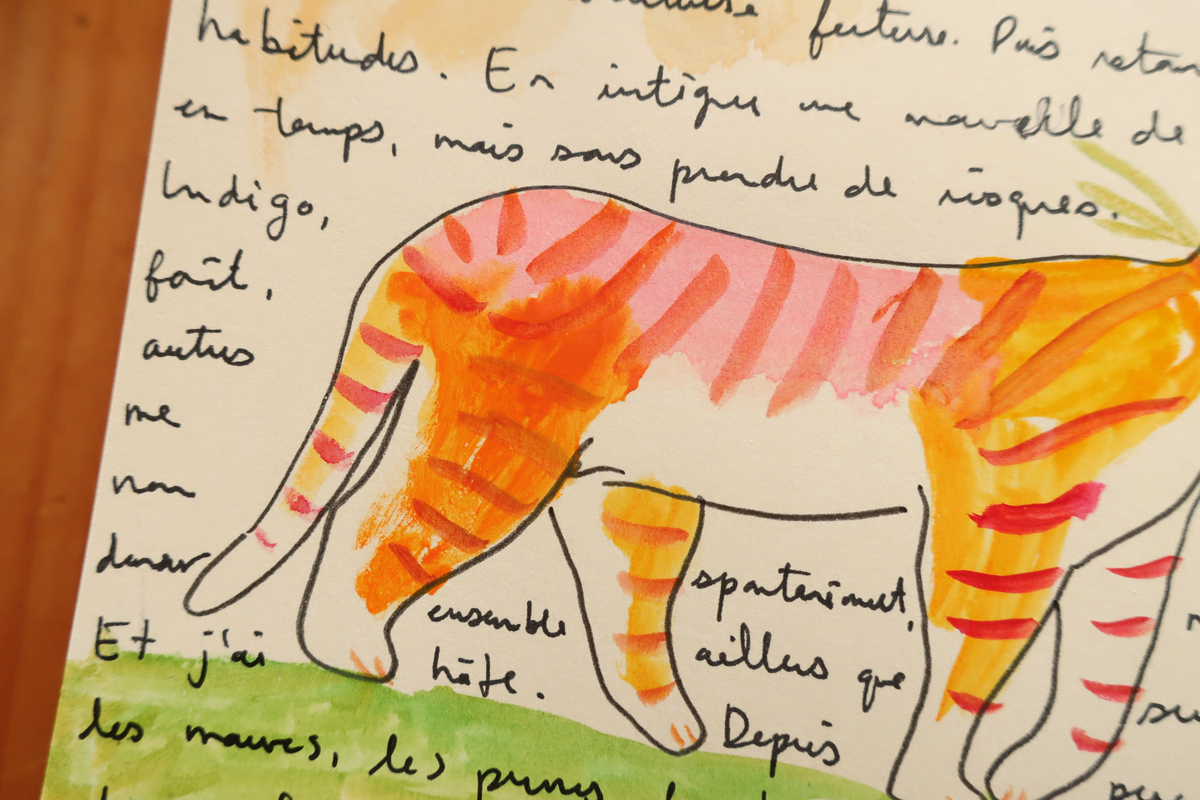 future. Puis
habitudes. En intégrer une nouvelle de
en temps, mais sans prendre de risques.
Indigo,
fait,
autres
me
non
donner
Et j'ai ensemble spontanément,
hâte. ailleurs que
les mauves, les prunes Depuis